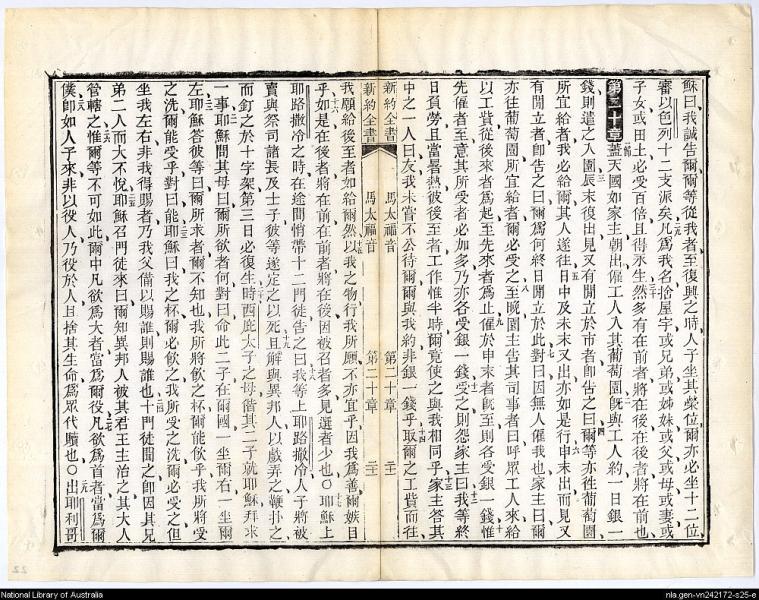 穌曰我誠告爾爾等從我者至復興之時人子坐其榮位爾亦必坐十二位
審以色列十二支派矣凡爲我名捨屋宇或兄弟或姊妹或父或母或妻或
子女或田土必受百倍且得永生然多有在前者將在後在後者將在前也
第二十章蓋天國如家主朝出僱工人入其葡萄園旣與工人約一日銀一
錢則遣之入園辰末復出見又有閒立於市者卽告之曰爾等亦徃葡萄園
所宜給者我必給爾其人遂徃日中及未末又出亦如是行申末出而見又
有閒立者卽告之曰爾爲何終日閒立於此對曰因無人僱我也家主曰爾
亦徃葡萄園所宜給者爾必受之至晚園主告其司事者曰呼眾工人來給
以工貲從後來者爲起至先來者爲止僱於申末者旣至則各受銀一錢惟
先僱者至意其所受者必加多乃亦各受銀一錢受之則怨家主曰我等終
日負勞且當暑熱彼後至者工作惟半時爾竟使之與我相同乎家主答其
中之一人曰友我未嘗不公待爾爾與我約非銀一錢乎取爾之工貲而徃
新約全書 馬太福音 第二十章 二十二
新約全書 馬太福音 第二十章 二十二
我願給後至者如給爾然以我之物行我所願不亦宜乎因我爲善爾嫉目
乎如是在後者將在前在前者將在後因被召者多見選者少也○耶穌上
耶路撒冷之時在途間悄帶十二門徒告之曰我等上耶路撒冷人子將被
賣與祭司諸長及士子彼等遂定之以死且解與異邦人以戲弄之鞭扑之
而釘之於十字架第三日必復生時西庇太子之母偕其二子就耶穌拜求
一事耶穌問其母曰爾所欲者何對曰命此二子在爾國一坐爾右一坐爾
左耶穌答彼等曰爾所求者爾不知也我所將飲之杯爾能飲乎我所將受
之洗爾能受乎對曰能耶穌曰我之杯爾必飲之我所受之洗爾必受之但
坐我左右非我得賜者乃我父備以賜誰則賜誰也十門徒聞之卽因其兄
弟二人而大不悅耶穌召門徒來曰爾知異邦人被其君王主治之其大人
管轄之惟爾等不可如此爾中凡欲爲大者當爲爾役凡欲爲首者當爲爾
僕卽如人子來非以役人乃役於人且捨其生命爲眾代贖也○出耶利哥
National Library of Australia
nla.gen-vn242172-s25-e